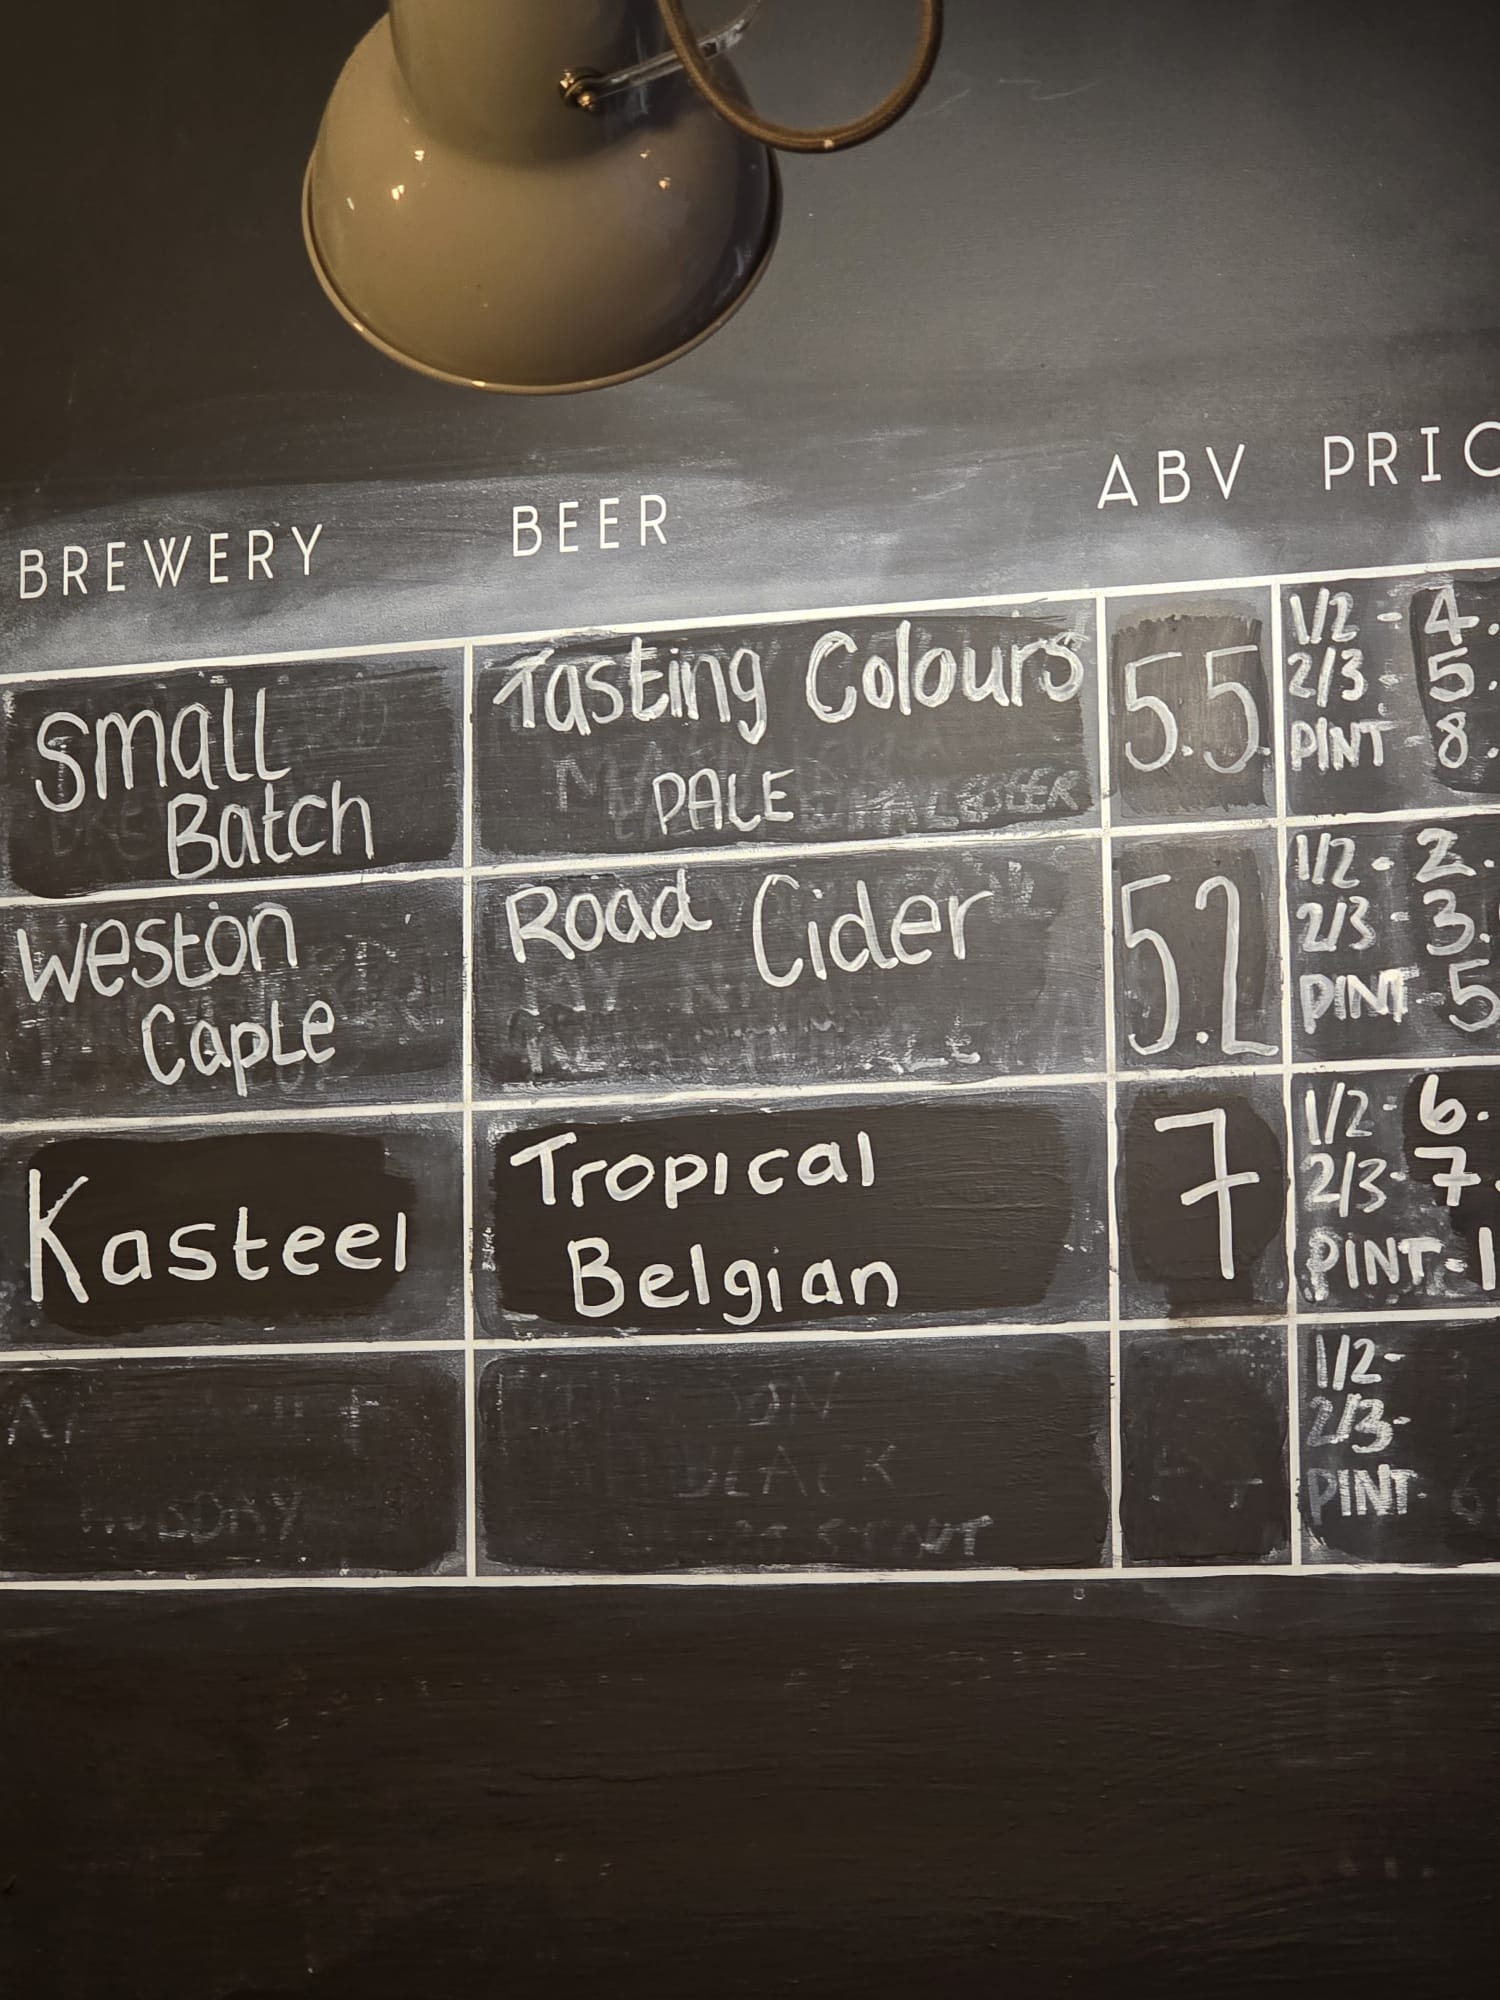 BREWERY BEER ABV PRIC
Small
Batch
Tasting Colours
PALE
5.5
1/2 - 4.
2/3 - 5.
PINT - 8.
Weston
Caple
Road Cider
5.2
1/2 - 2.
2/3 - 3.
PINT - 5
Kasteel
Tropical
Belgian
7
1/2 - 6.
2/3 - 7.
PINT - 1
1/2-
2/3-
PINT-